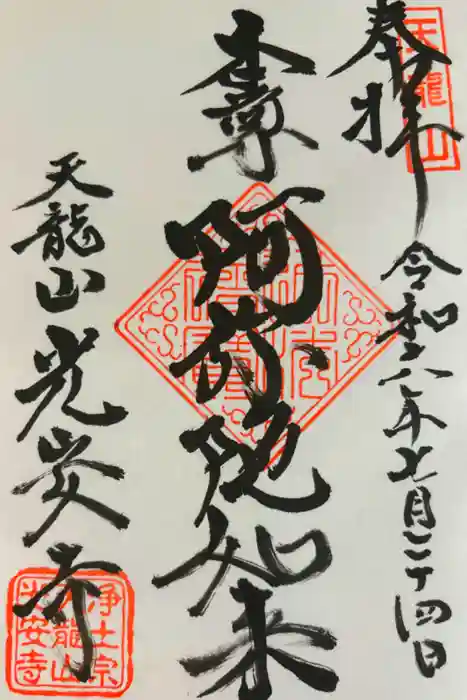 奉拝
天龍山
令和六年七月二十四日
本尊 阿弥陀如来
天龍山 光安寺
浄土宗
天龍山
光安寺